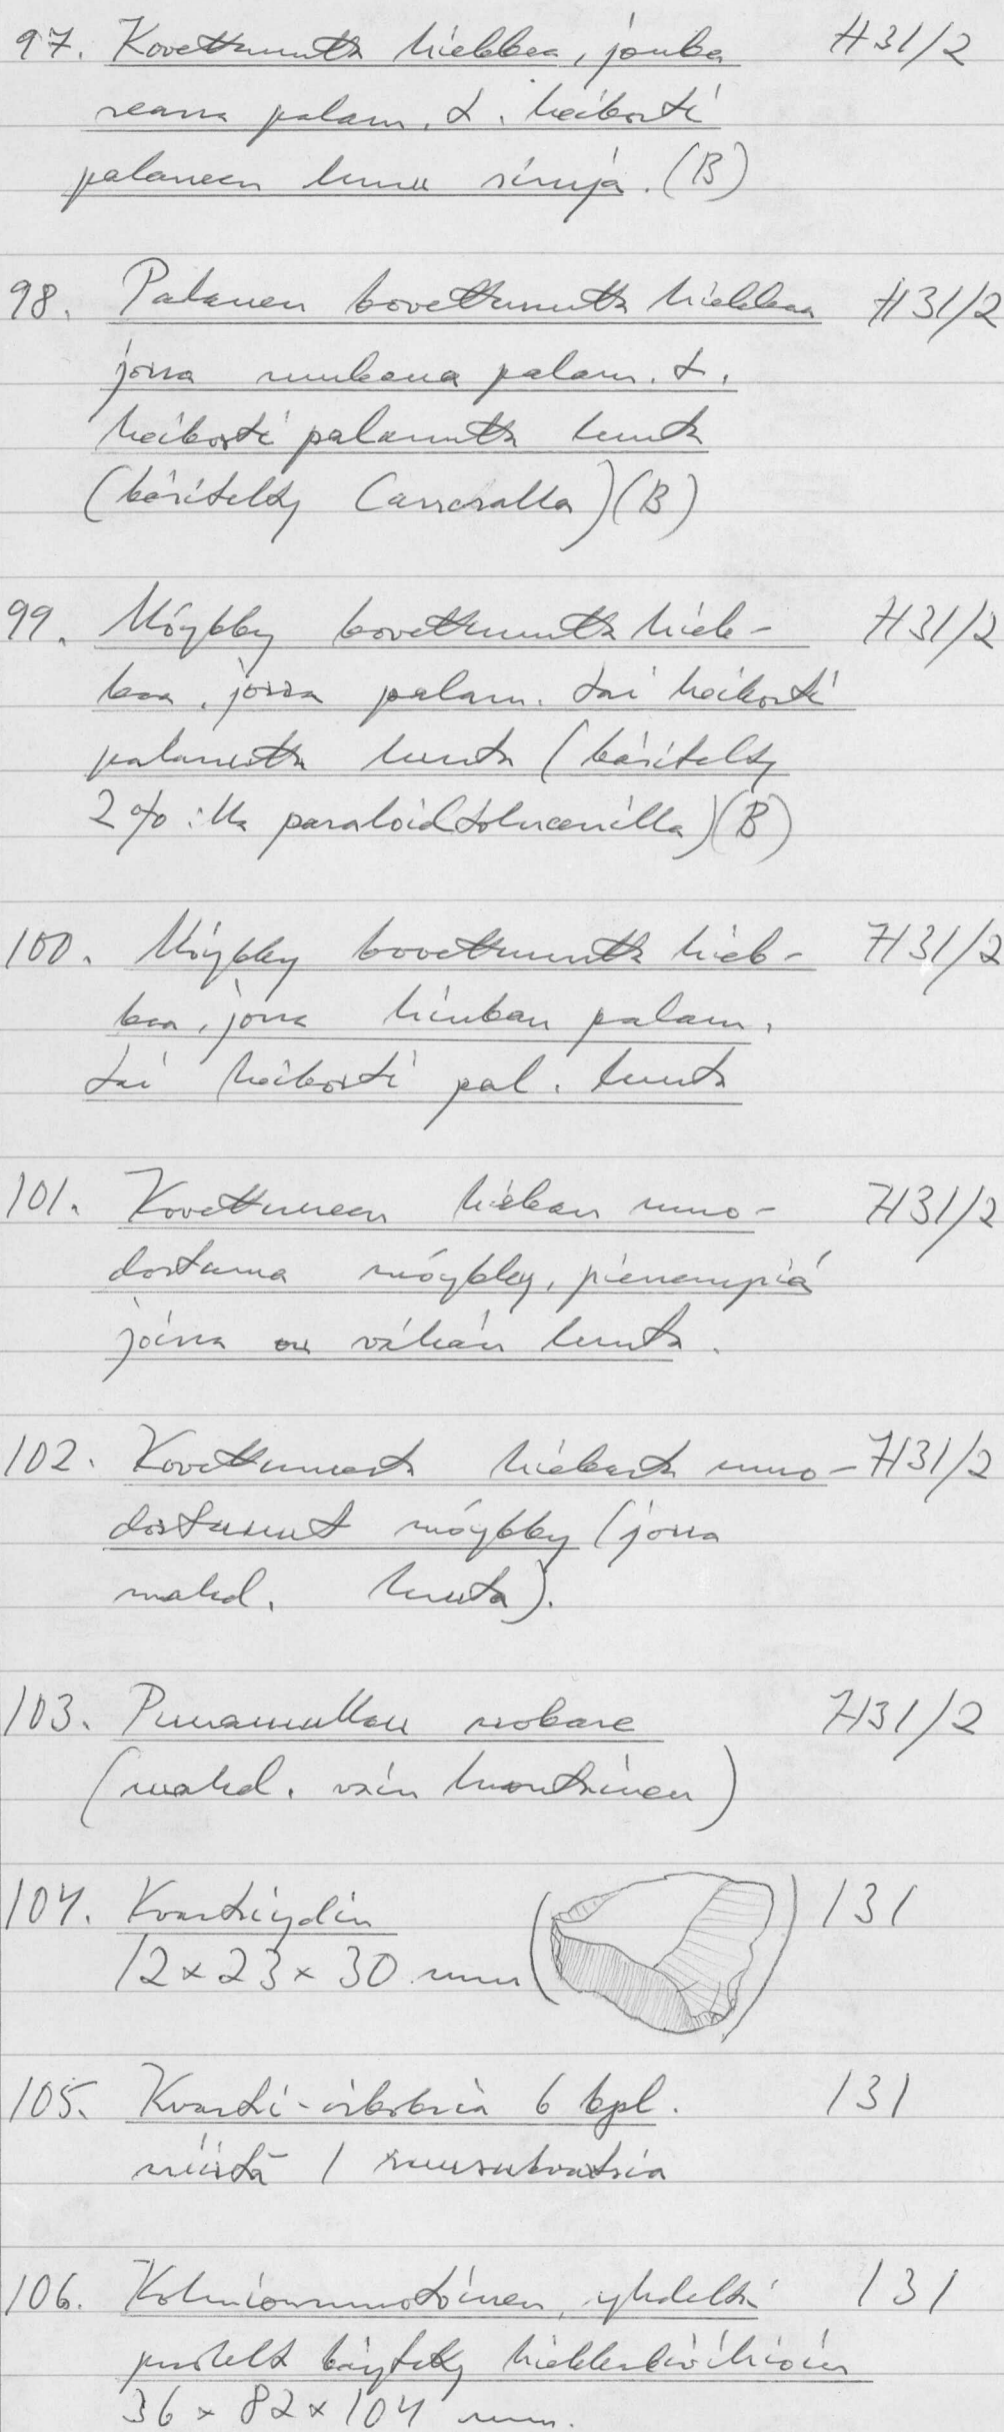 97. Kovettunutta hiekkaa, jonka H31/2
seassa palam. t. heikosti
palaneen luun siruja. (B)
98. Palanen kovettunutta hiekkaa H31/2
jossa mukana palam. t.
heikosti palanutta luuta
(käsitelty Carresalla) (B)
99. Möykky kovettunutta hiek- H31/2
kaa, jossa palam. tai heikosti
palanutta luuta (käsitelty
2%:lla paraloidtolueenilla) (B)
100. Möykky kovettunutta hiek- H31/2
kaa, jossa hiukan palam.
tai heikosti pal. luuta
101. Kovettuneen hiekan muo- H31/2
dostama möykky, pienempiä
joissa on vähän luuta.
102. Kovettuneesta hiekasta muo- H31/2
dostunut möykky (jossa
mahd. luuta).
103. Punamullan sekane H31/2
(mahd. vain luontainen)
104. Kvartsiydin 131
12 x 23 x 30 mm
105. Kvartsi-iskoksia 6 kpl. 131
niistä 1 ruusukvartsia
106. Kolmionmuotoinen, yhdeltä 131
puolelta käytetty hiekkakivihioin
36 x 82 x 104 mm.